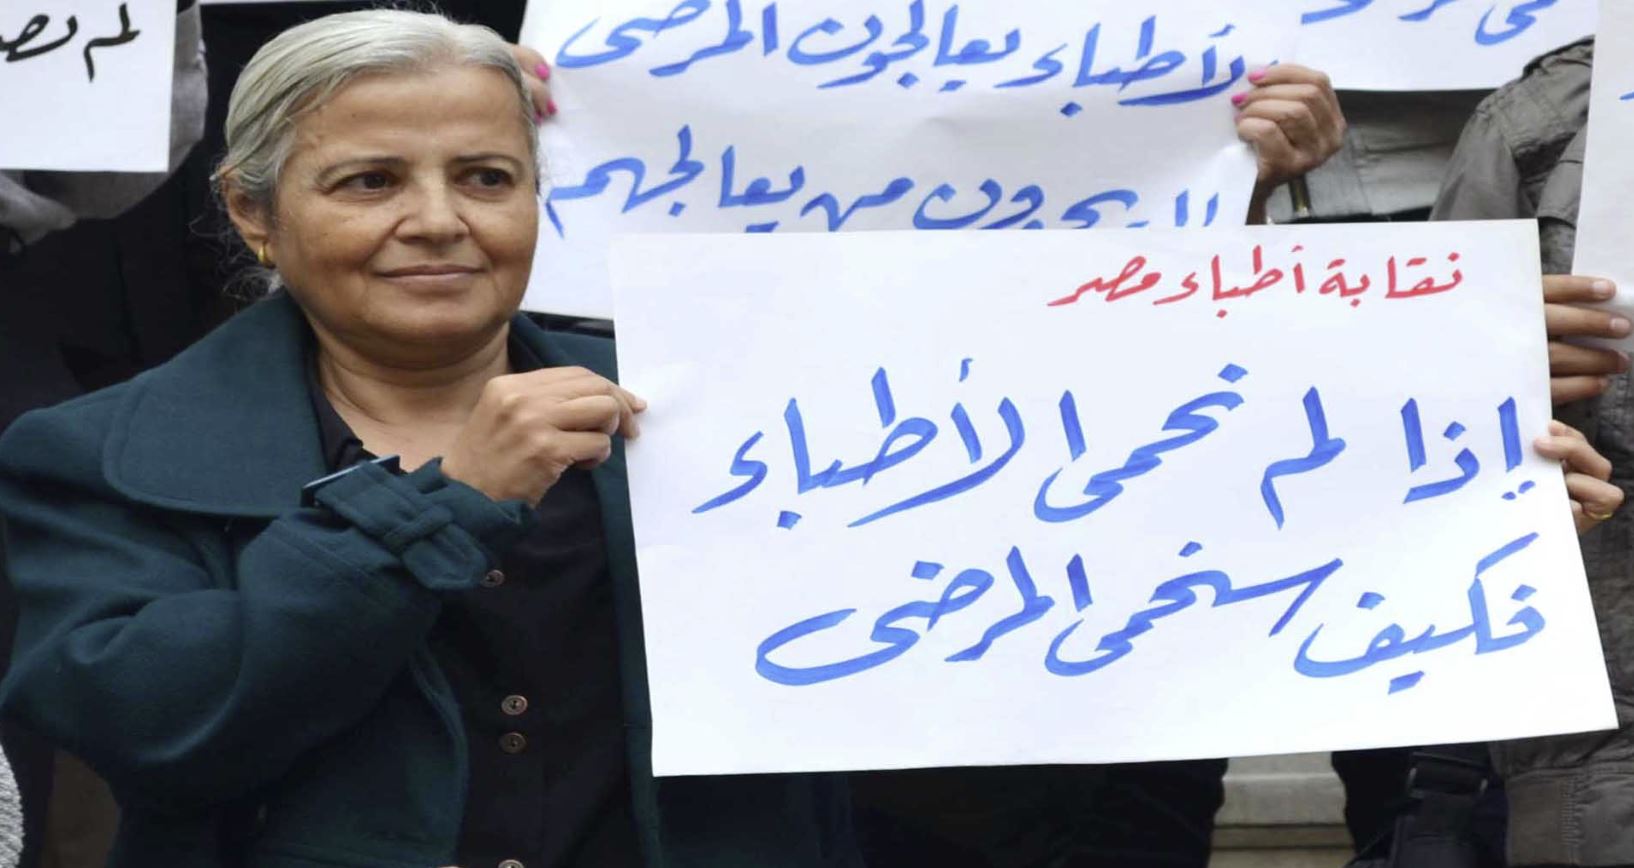 لم نص
لأطباء يعالجون المرضى
لا يجدون من يعالجهم
نقابة أطباء مصر
إذا لم نحمى الأطباء
فكيف سنحمى المرضى